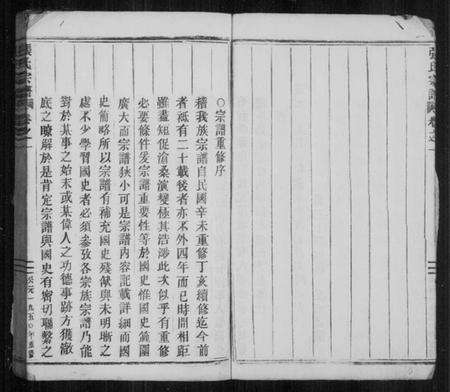 張氏宗譜 卷之一
○宗譜重修序
稽我族宗譜自民國辛未重修丁亥續修迄今前
者祗有二十載後者亦不外四年而已時間相距
雖盡短促滄桑演變極其浩渺此次似乎有重修
必要條件爰宗譜重要性等於國史惟國史範圍
廣大而宗譜狹小可是宗譜內容記載詳細而國
史簡略所以宗譜有補充國史殘缺與未明晰之
處不少學習國史者必須參攷各宗族宗譜乃能
對於某事之始末或某偉人之功德事跡方獲澈
底之瞭解於是肯定宗譜與國史有密切聯繫之
張氏宗譜 卷之一
一九五〇年重修